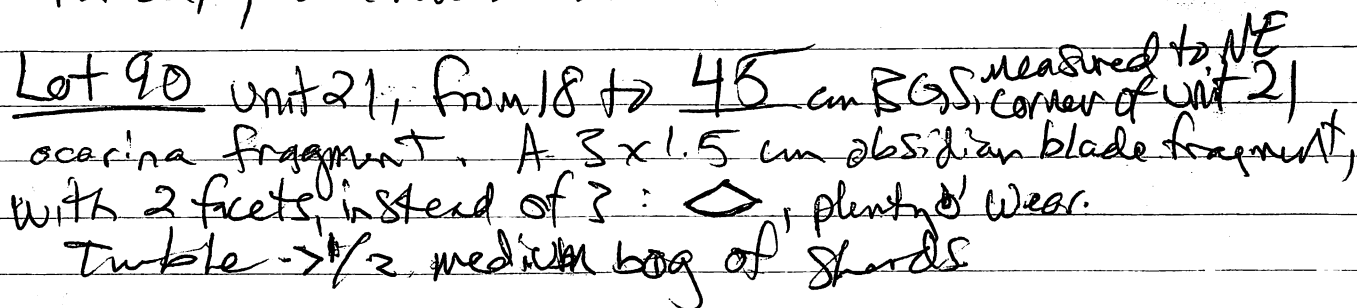 Lot 90 unit 21, from 18 to 45 cm BGS, measured to NE corner of unit 21
ocarina fragment. A 3x1.5 cm obsidian blade fragment,
with 2 facets, instead of 3 : , plenty o' wear.
Tumble -> 1/2 medium bag of sherds